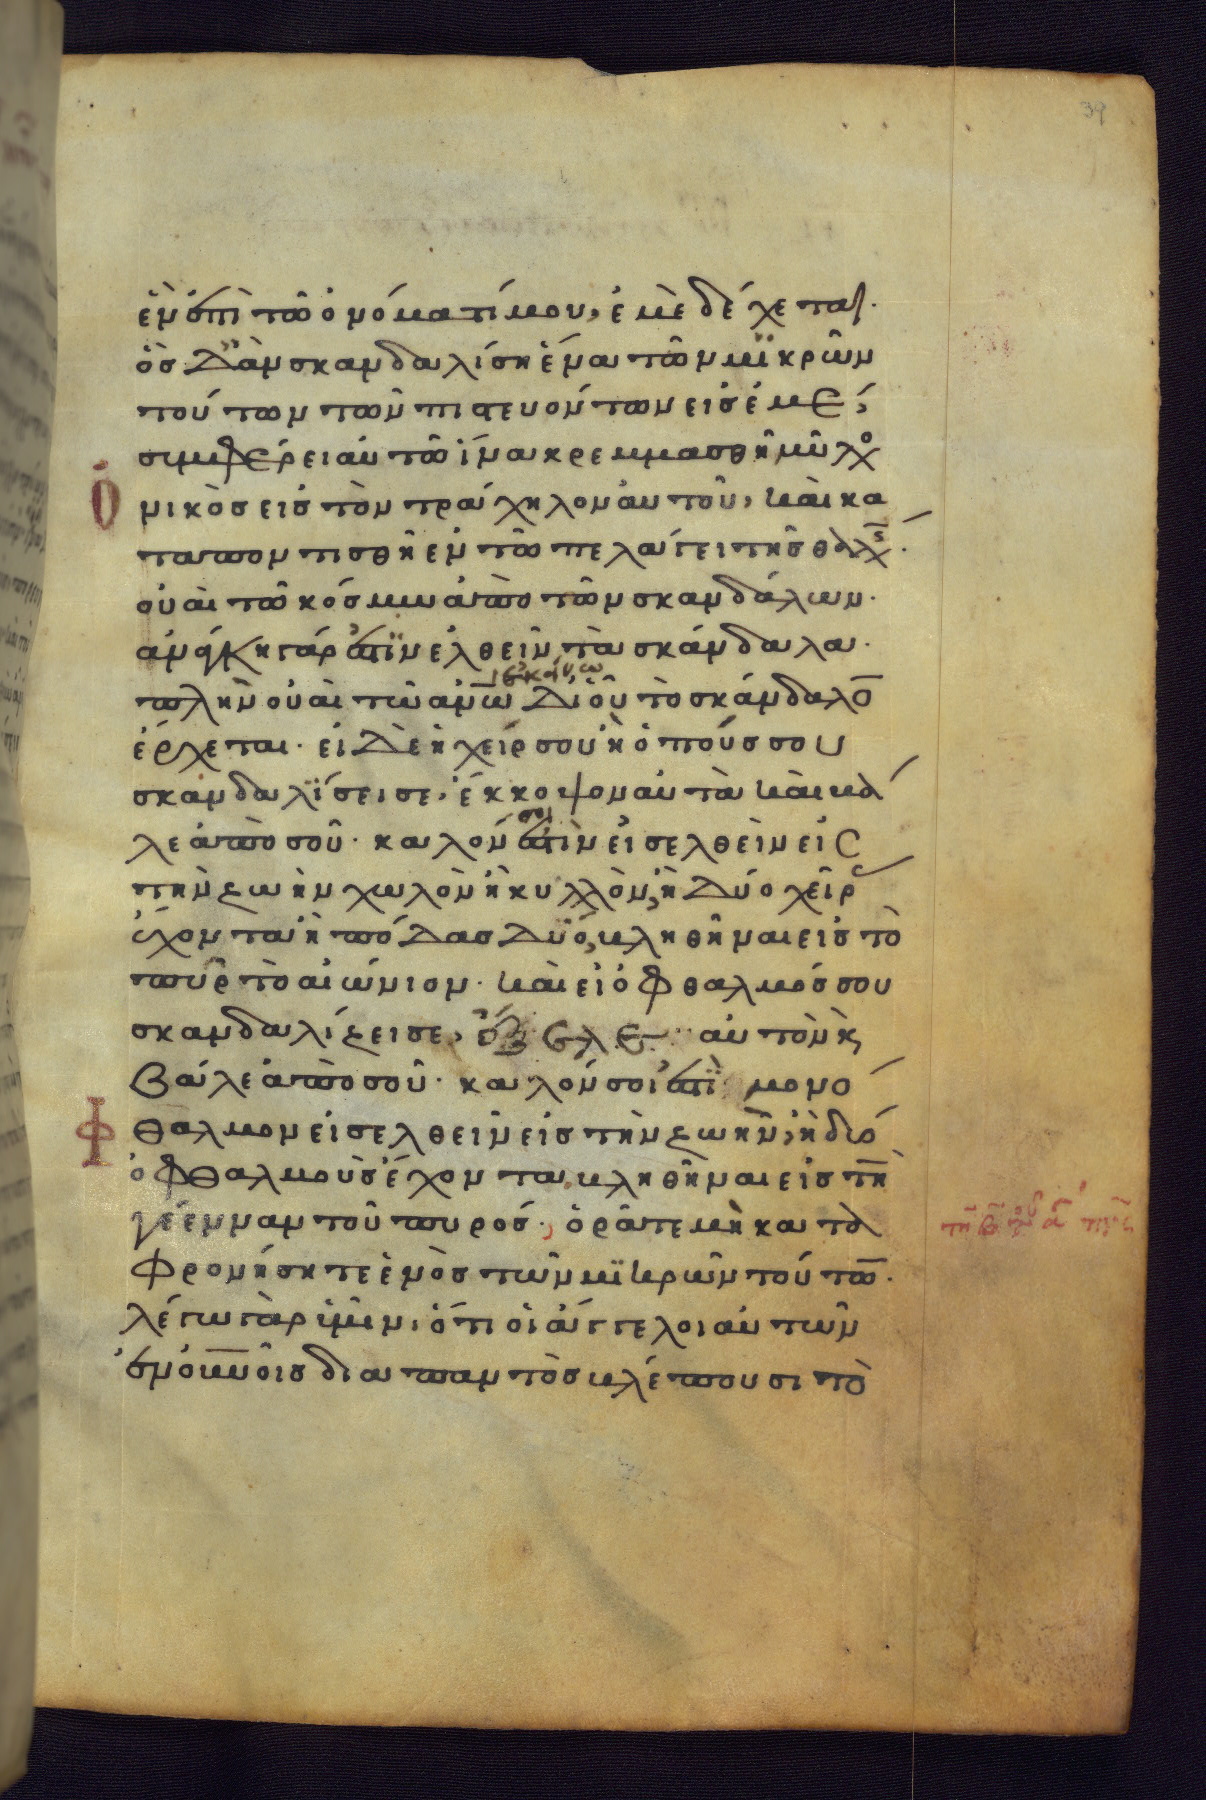 39
ἓν ἐπὶ τῶ ὀνόματί μου, ἐμὲ δέχεται.
ὃς δ' ἂν σκανδαλίση ἕνα τῶν μϊκρῶν
τούτων τῶν πιστευόντων εἰς ἐμέ,
σιμφέρει αὐτῶ ἵνα κρεμμασθῆ μῦλο
Ὁ
νικὸς εἰς τὸν τράχηλον αὐτοῦ, καὶ κα
ταποντισθῆ ἐν τῶ πελάγει τῆς θαλς.
οὐαὶ τῶ κόσμω ἀπὸ τῶν σκανδάλων.
ἀνάγκη γάρ ἐστϊν ἐλθεῖν τὰ σκάνδαλα.
ἐκείνω
πλὴν οὐαὶ τῶ ανω δι' οὗ τὸ σκάνδαλο
ἔρχεται. εἰ δὲ ἡ χείρ σου ἢ ὁ πούς σου
σκανδαλϊσει σε, ἔκκοψον αὐτὰ καὶ βά
σοι
λε ἀπὸ σοῦ. καλόν ἐστὶν εἰσελθεῖν εἰς
τὴν ζωὴν χωλὸν ἢ κυλλὸν, ἢ δύο χεῖρ
ἔχοντα ἢ πόδας δύο, βληθῆναι εἰς τὸ
πῦρ τὸ αἰώνιον. καὶ εἰ ὁ φθαλμός σου
σκανδαλίζει σε, ἔξελε αὐτὸν κ
βάλε ἀπὸ σοῦ. καλόν σοι ἐστϊ μονό
Φ
θαλμον εἰσελθεῖν εἰς τὴν ζωὴν, ἢ διό
ὀφθαλμοὺς ἔχοντα, βληθῆναι εἰς τη
γέενναν τοῦ πυρός. ὁρᾶτε μὴ κατα
φρονήσητε ἑνὸς τῶν μϊκρῶν τούτω.
λέγω γὰρ ὑμῖν, ὅτι οἱ ἄγγελοι αὐτῶν
ἐν οὐνοῖς διὰ παντὸς βλέπουσι τὸ